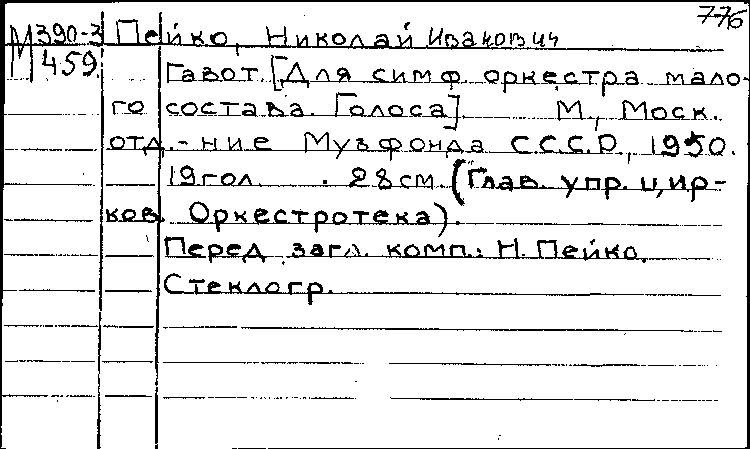 7-76
М 390-3 Пейко, Николай Иванович
459 Гавот. [Для симф. оркестра мало-
го состава. Голоса]. М., Моск.
отд.-ние Музфонда С.С.С.Р., 1950.
19 гол. . 28 см. (Глав. упр. цир-
ков. Оркестротека).
Перед загл. комп.: Н. Пейко.
Стеклогр.